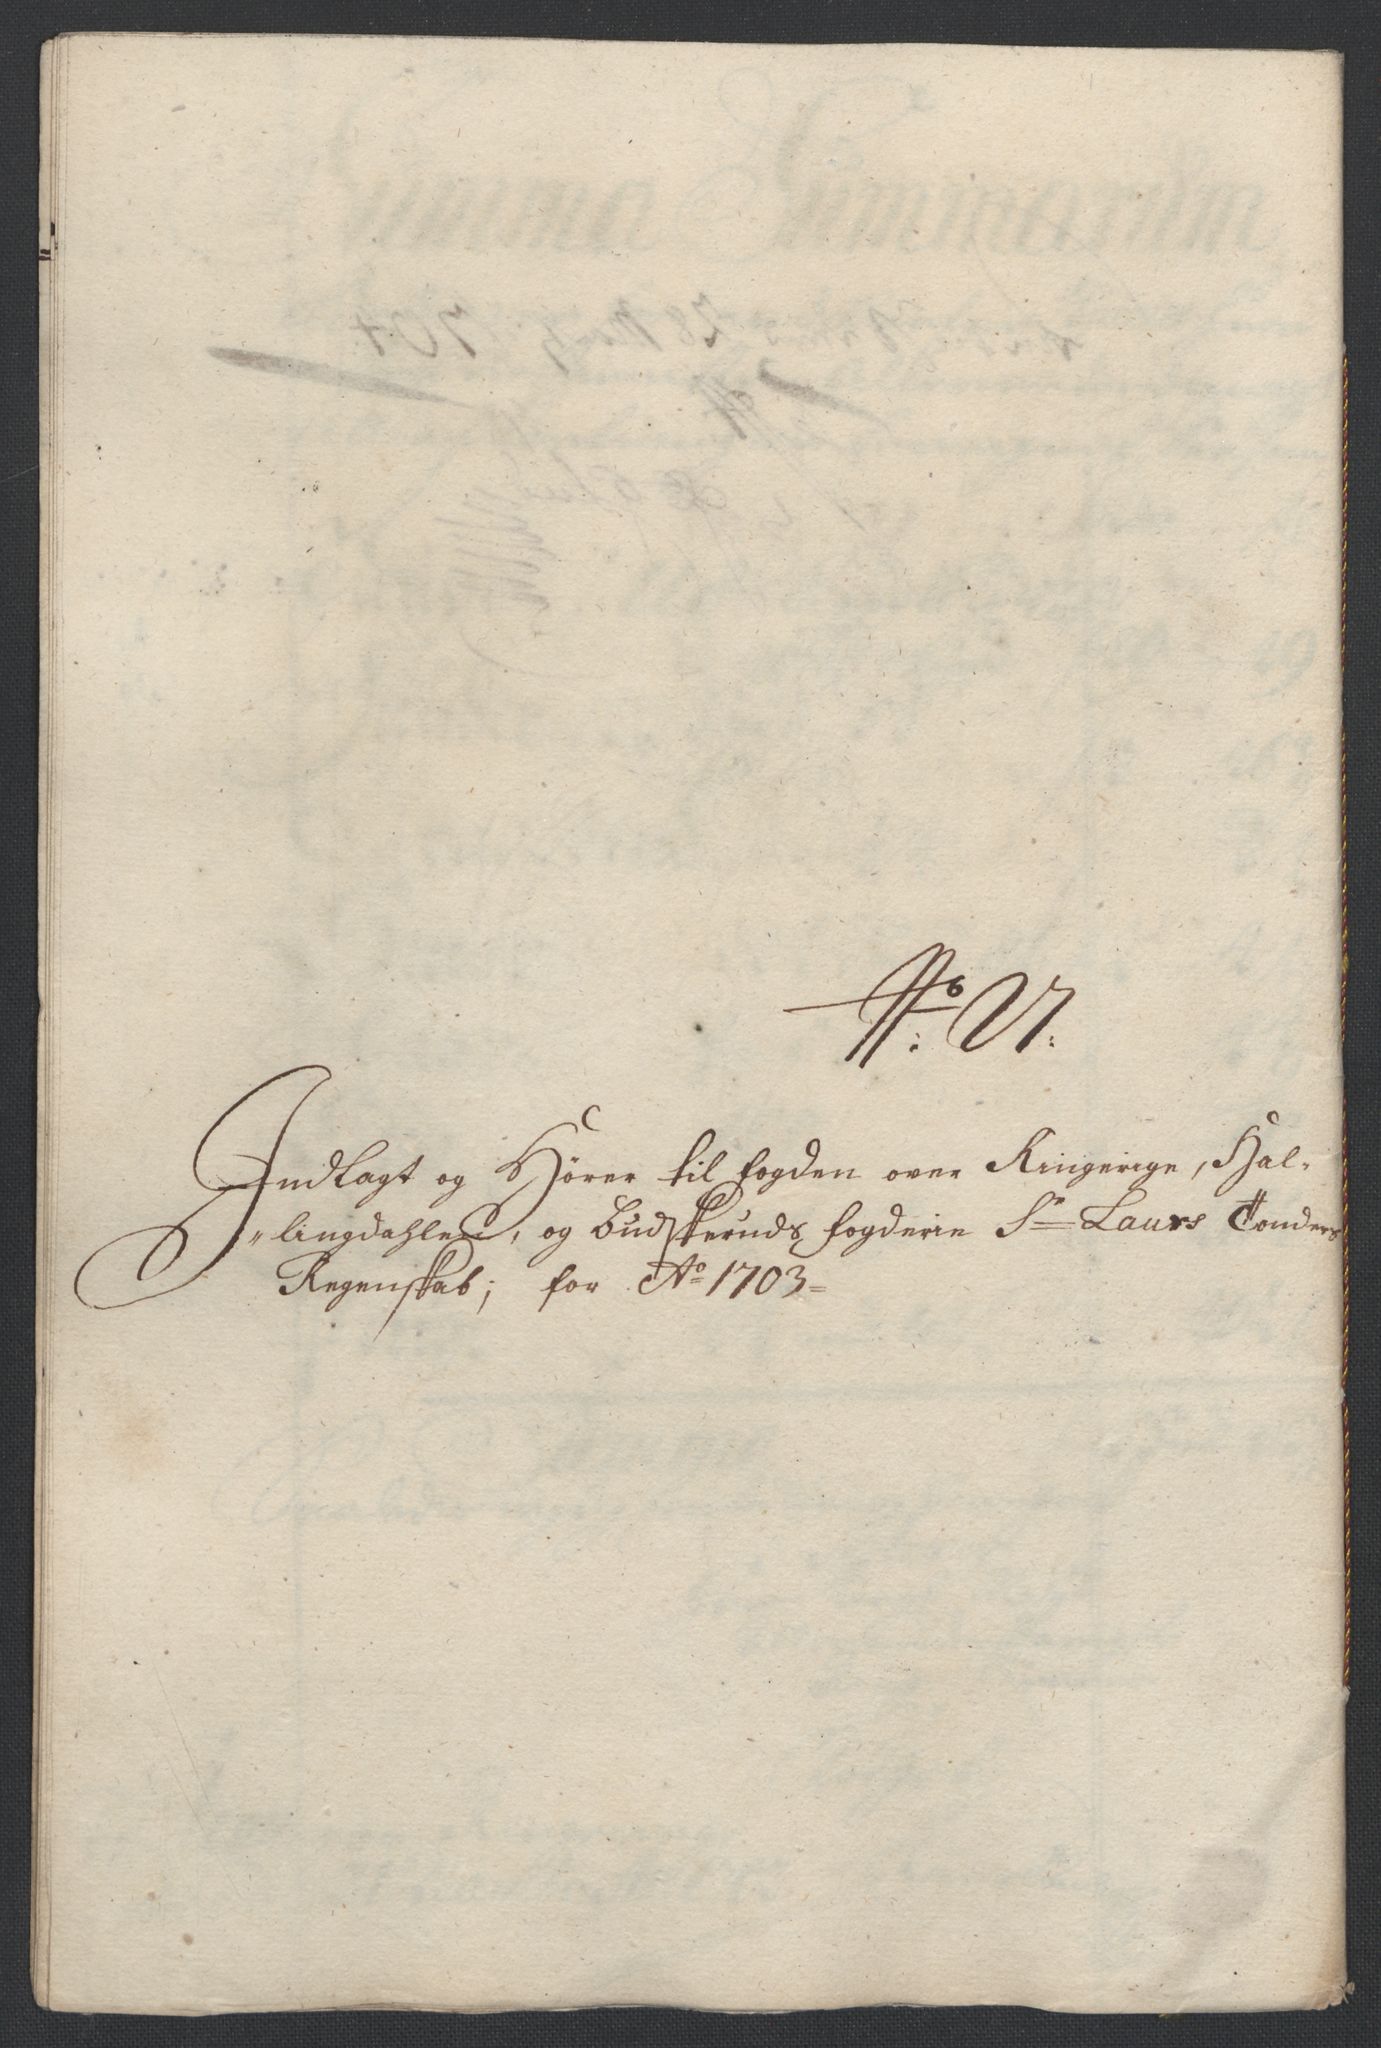 No: 
Indlagt og Hörer til fogden over Ringerige, Hal-
"lingdahlen, og Budskeruds fogderie Sr Laurs Tonders
Regenskab; for Ao 1703=